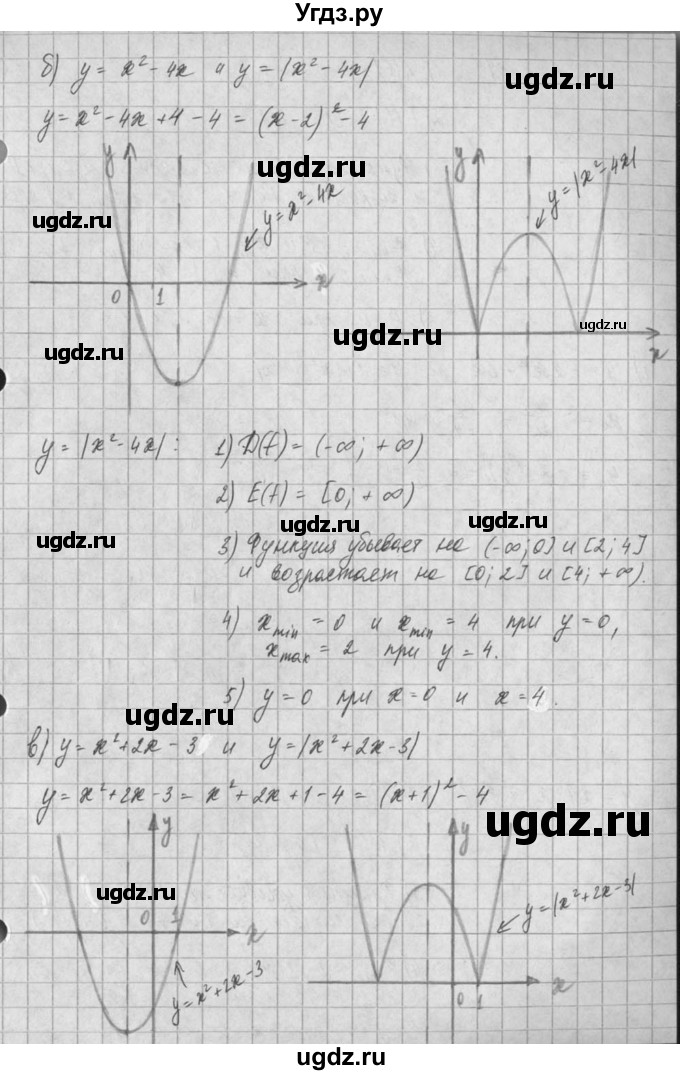 Угдз.ру
б) y = x² - 4x и y = |x² - 4x|
y = x² - 4x + 4 - 4 = (x - 2)² - 4
ugdz.ru
y
y
y = |x² - 4x|
y = x² - 4x
ugdz.ru
0 1
x
ugdz.ru
ugdz.ru
ugdz.ru
x
y = |x² - 4x| :
1) D(f) = (-∞; +∞)
2) E(f) = [0; +∞)
ugdz.ru
ugdz.ru
ugdz.ru
3) Функция убывает на (-∞; 0] и [2; 4]
и возрастает на [0; 2] и [4; +∞).
4) x min = 0 и x min = 4 при y = 0,
x max = 2 при y = 4.
5) y = 0 при x = 0 и x = 4.
ugdz.ru
в) y = x² + 2x - 3 и y = |x² + 2x - 3|
y = x² + 2x - 3 = x² + 2x + 1 - 4 = (x + 1)² - 4
ugdz.ru
y
y
ugdz.ru
y = |x² + 2x - 3|
0 1
x
y = x² + 2x - 3
0 1
x
ugdz.ru
ugdz.ru
ugdz.ru